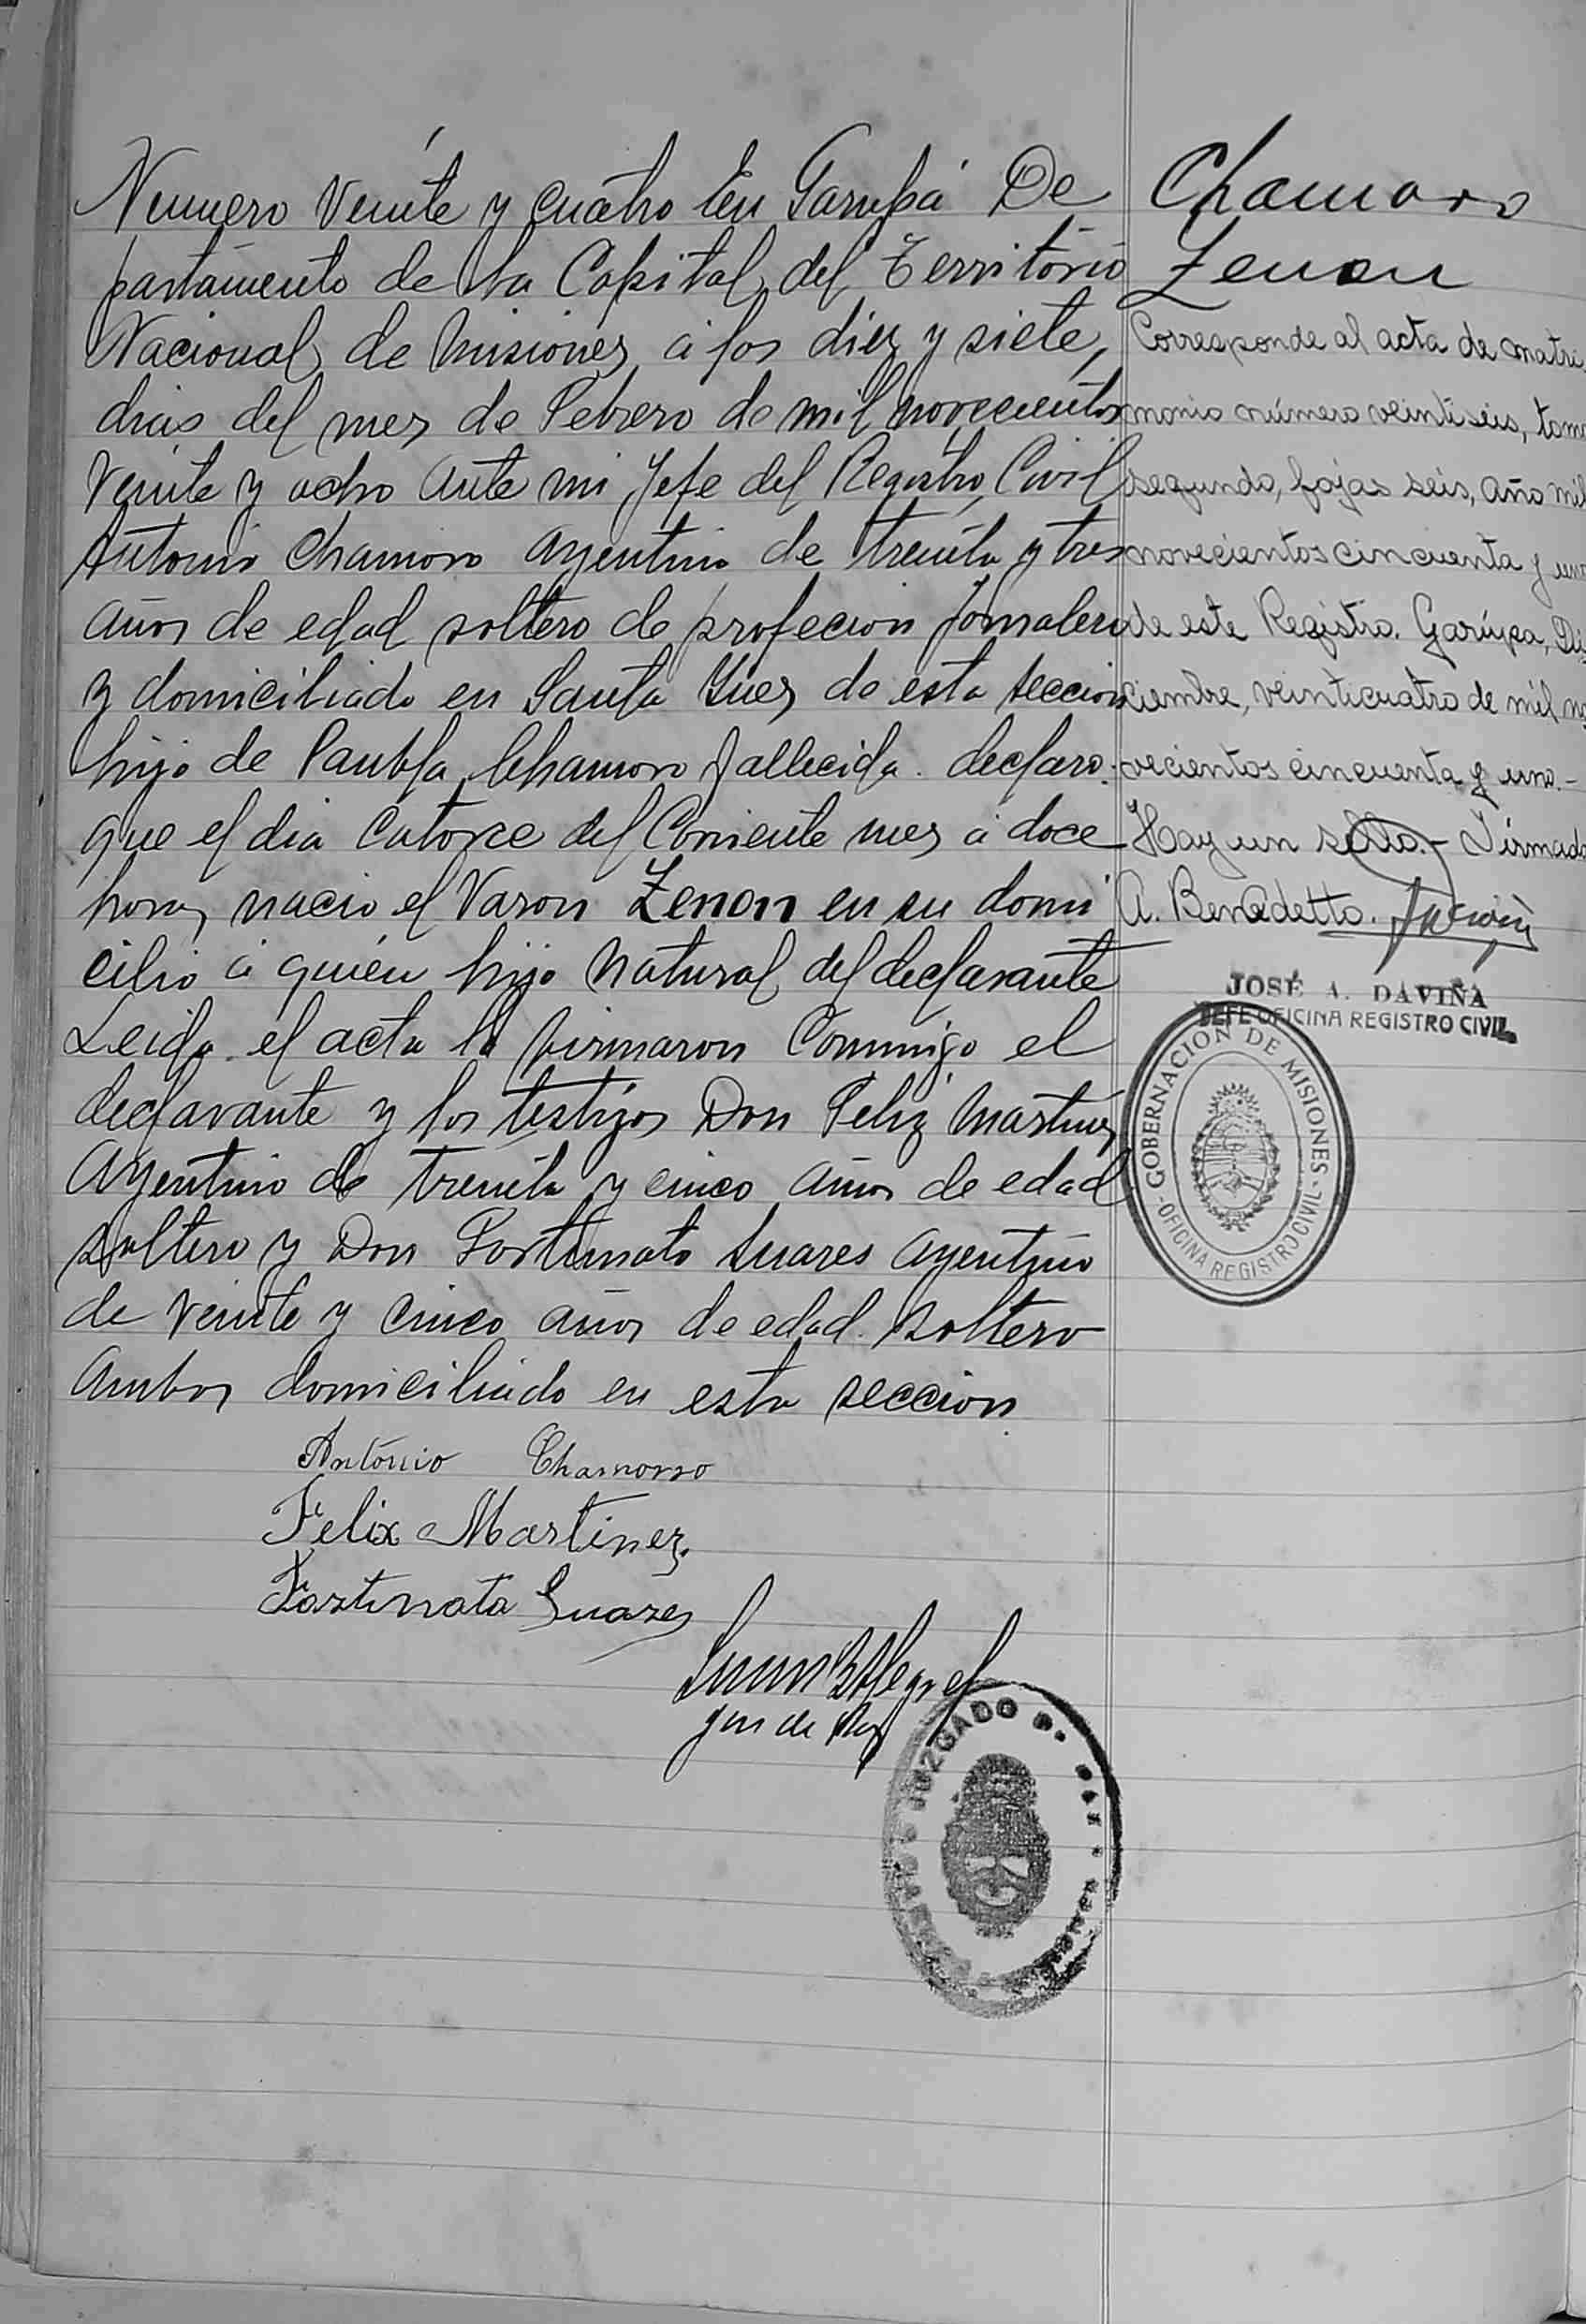 Numero Veinte y cuatro En Garupá De
partamento de la Capital del Territorio
Nacional de Misiones a los diez y siete,
dias del mes de Febrero de mil novecientos
Veinte y ocho Ante mi Jefe del Registro Civil
Antonio Chamoro Argentino de treinta y tres
años de edad soltero de profecion Jornalero
y domiciliado en Santa Ynes de esta seccion
hijo de Paubla Chamoro fallecida. declaro:
que el dia Catorce del Corriente mes á doce
horas nacio el Varon Zenon en su domi
cilio á quien hijo Natural del declarante
Leida el acta la firmaron Conmigo el
declarante y los testigos Don Feliz Martines
Argentino de treinta y cinco años de edad
soltero y Don Fortunato Suares Argentino
de Veinte y Cinco años de edad. Soltero
Ambos domiciliado en esta seccion
Antonio Chamorro
Felix Martinez.
Fortunata Suares
Juez de Paz
JUZGADO
Chamoro
Zenon
Corresponde al acta de matri
monio número veintiseis, tomo
segundo, fojas seis, año mil
novecientos cincuenta y uno
de este Registro. Garupa, Di
ciembre, veinticuatro de mil no
vecientos cincuenta y uno.-
Hay un sello.- Firmado
A. Benedetto.
JOSÉ A. DAVIÑA
JEFE OFICINA REGISTRO CIVIL
GOBERNACION DE MISIONES
- OFICINA REGISTRO CIVIL -